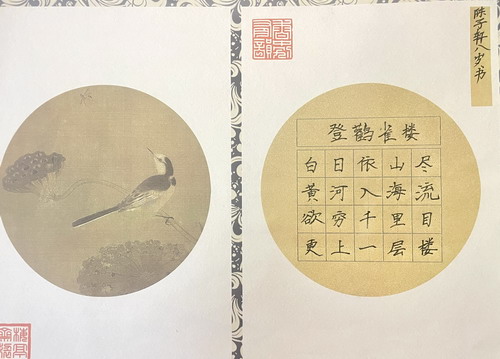 登鹳雀楼
白日依山尽
黄河入海流
欲穷千里目
更上一层楼
陈子轩八岁书